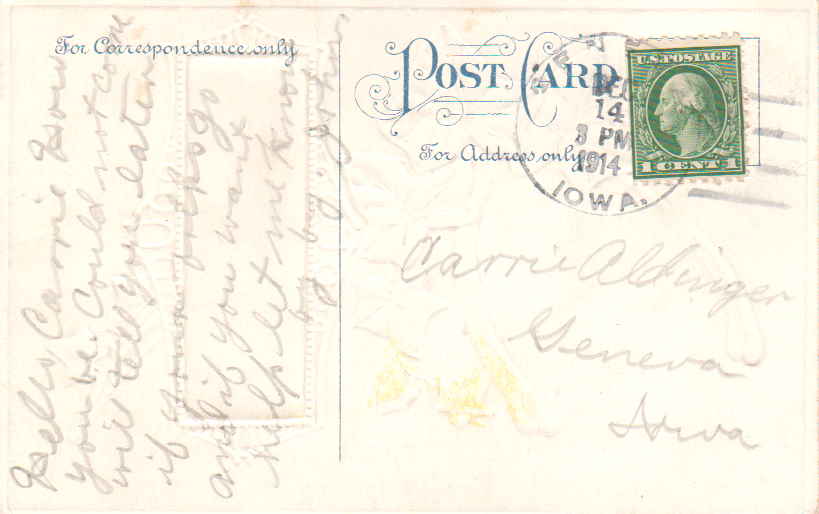 For Correspondence only
POST CARD
For Address only
U.S. POSTAGE
1 CENT 1
DEC
14
3 PM
1914
IOWA.
Hello Carrie How
you be. Could not come
will tell you later
if your folks go
and if you want
help let me know
by by. John
Carrie Aldinger
Geneva
Iowa